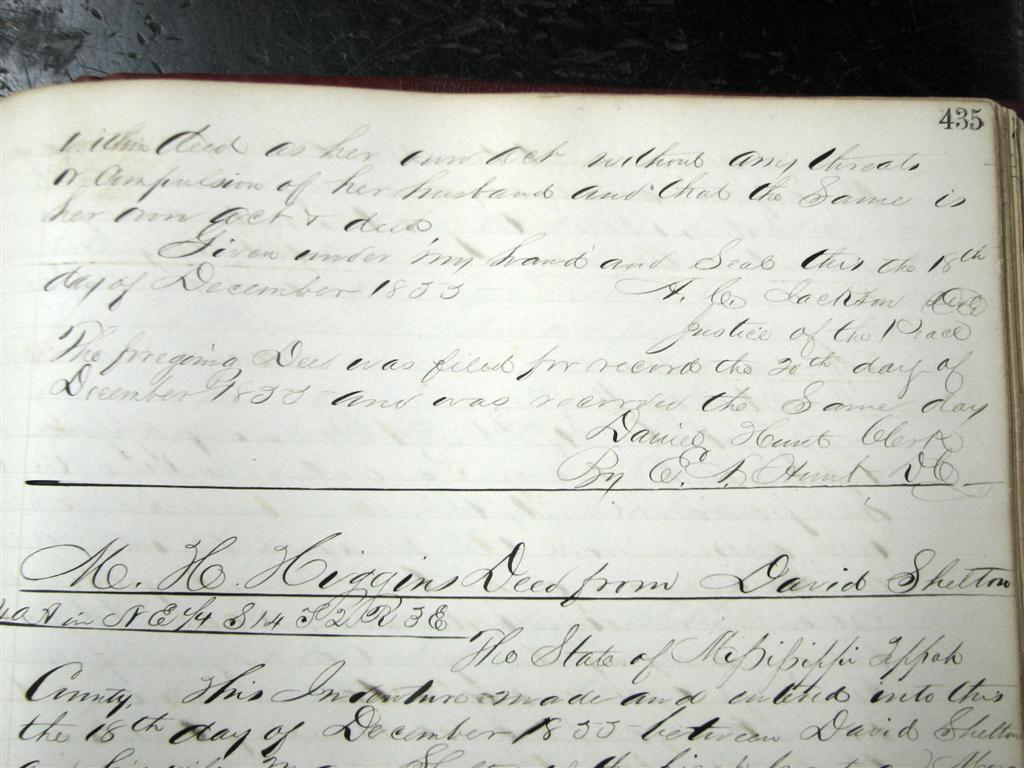 435
within deed as her own act without any threats
or Compulsion of her husband and that the Same is
her own act & deed
Given under my hand and Seal this the 18th
day of December 1855 A. C. Jackson
Justice of the Peace
The foregoing Deed was filed for record the 20th day of
December 1855 and was recorded the Same day
Daniel Hunt Clerk
By E. N. Hunt DC
M. H. Higgins Deed from David Shelton
in NE 1/4 S 14 T 2 R 3 E
The State of Mississippi Tippah
County, This Indenture made and entered into this
the 18th day of December 1855 between David Shelton